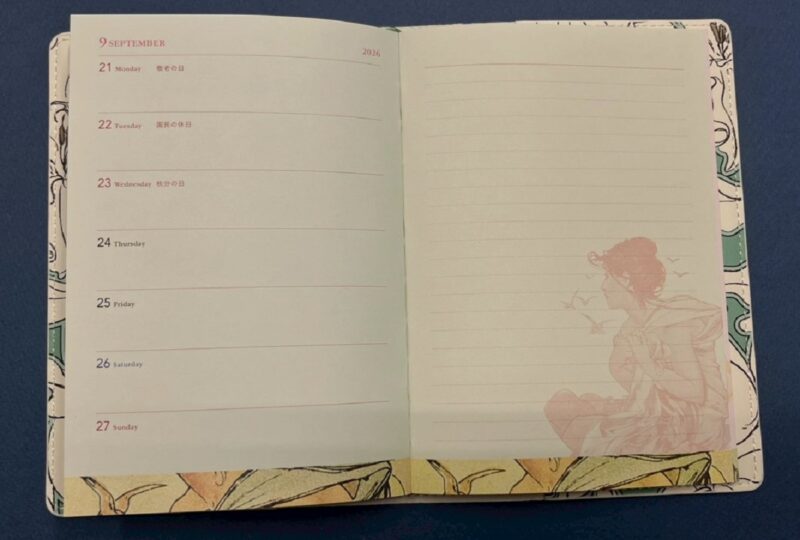 9 SEPTEMBER
2026
21 Monday 敬老の日
22 Tuesday 国民の休日
23 Wednesday 秋分の日
24 Thursday
25 Friday
26 Saturday
27 Sunday